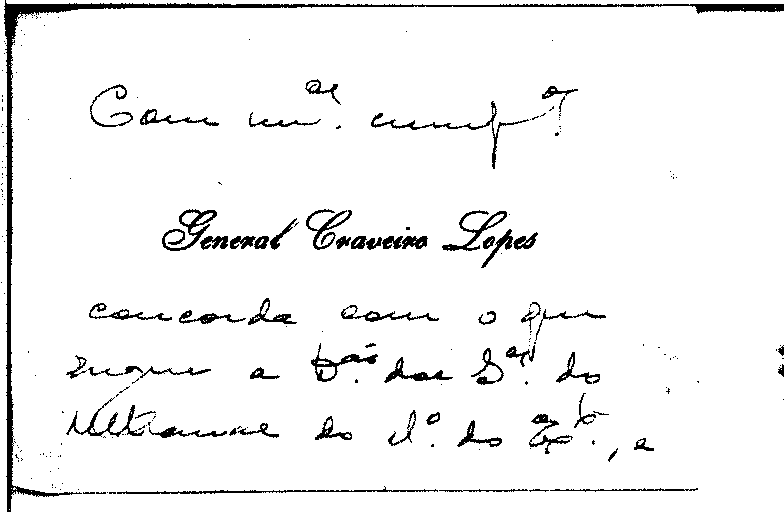 Com m.os cump.tos
General Craveiro Lopes
concorda com o que
sugere a D.ão dos S.os do
Ultramar do M.o do Ex.to, e